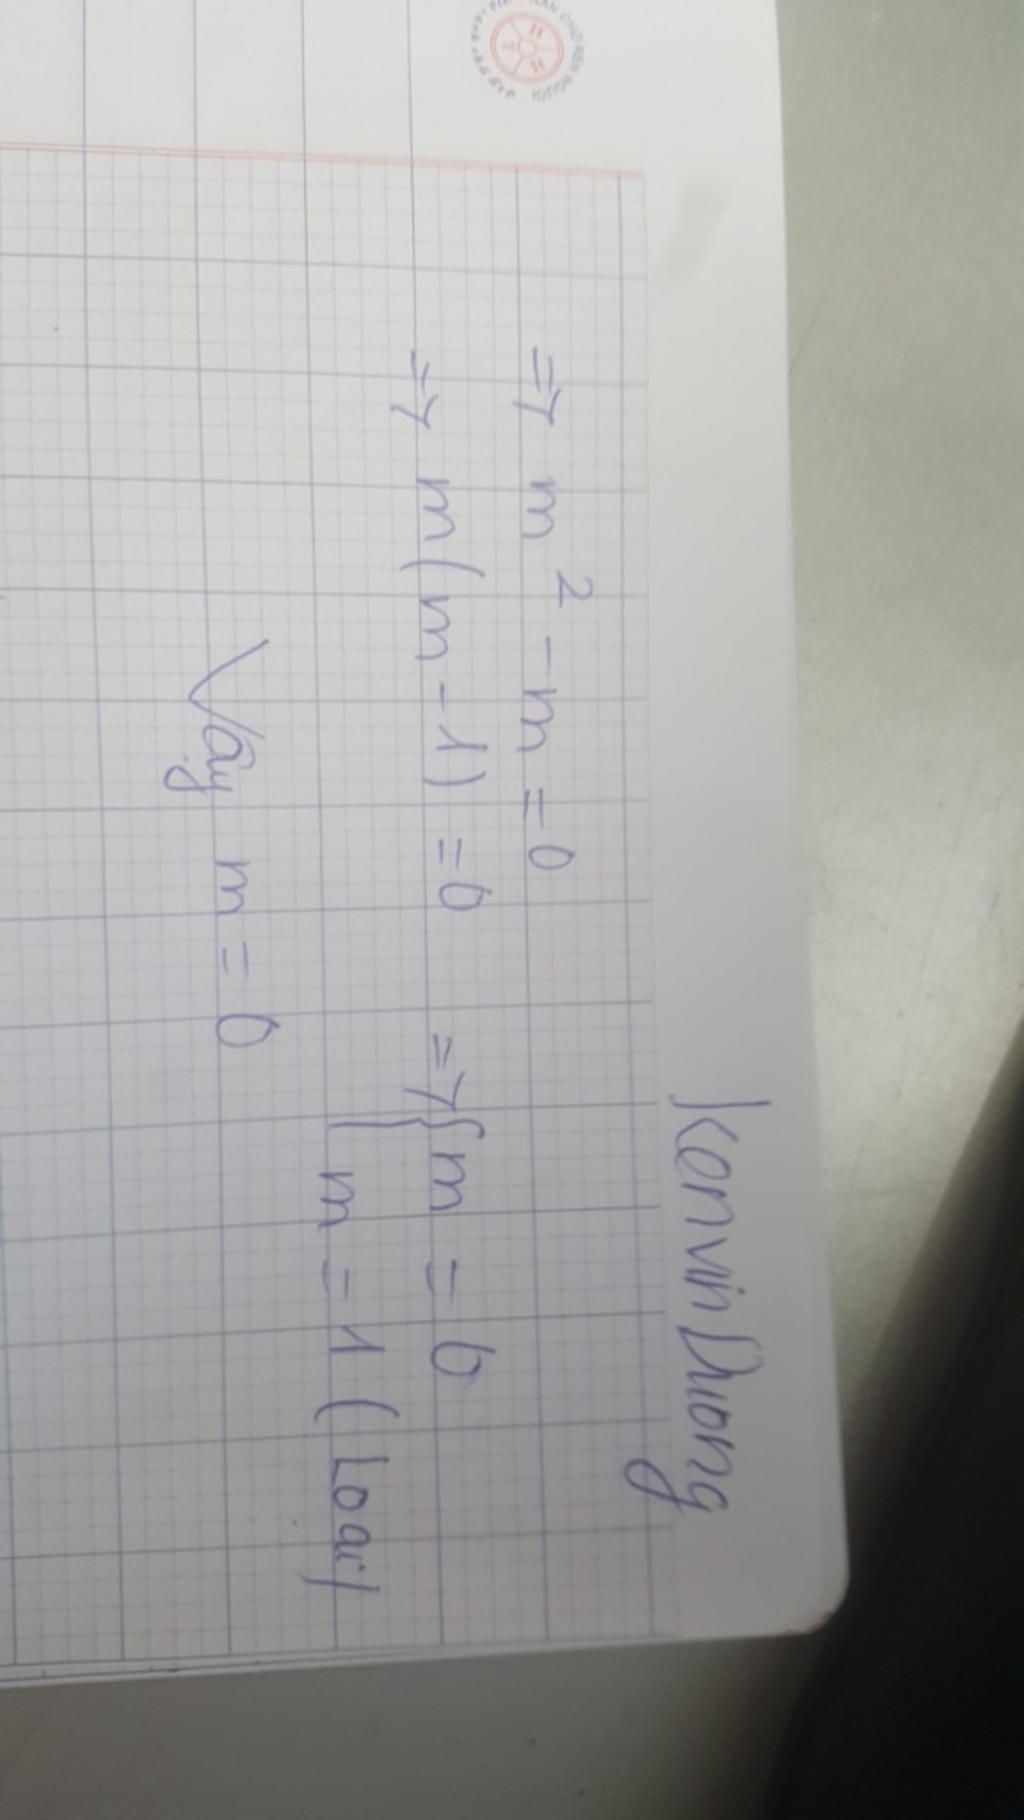 Kenvin Duong
=> m² - m = 0
=> m(m - 1) = 0 => { m = 0
m = 1 (Loại)
Vậy m = 0